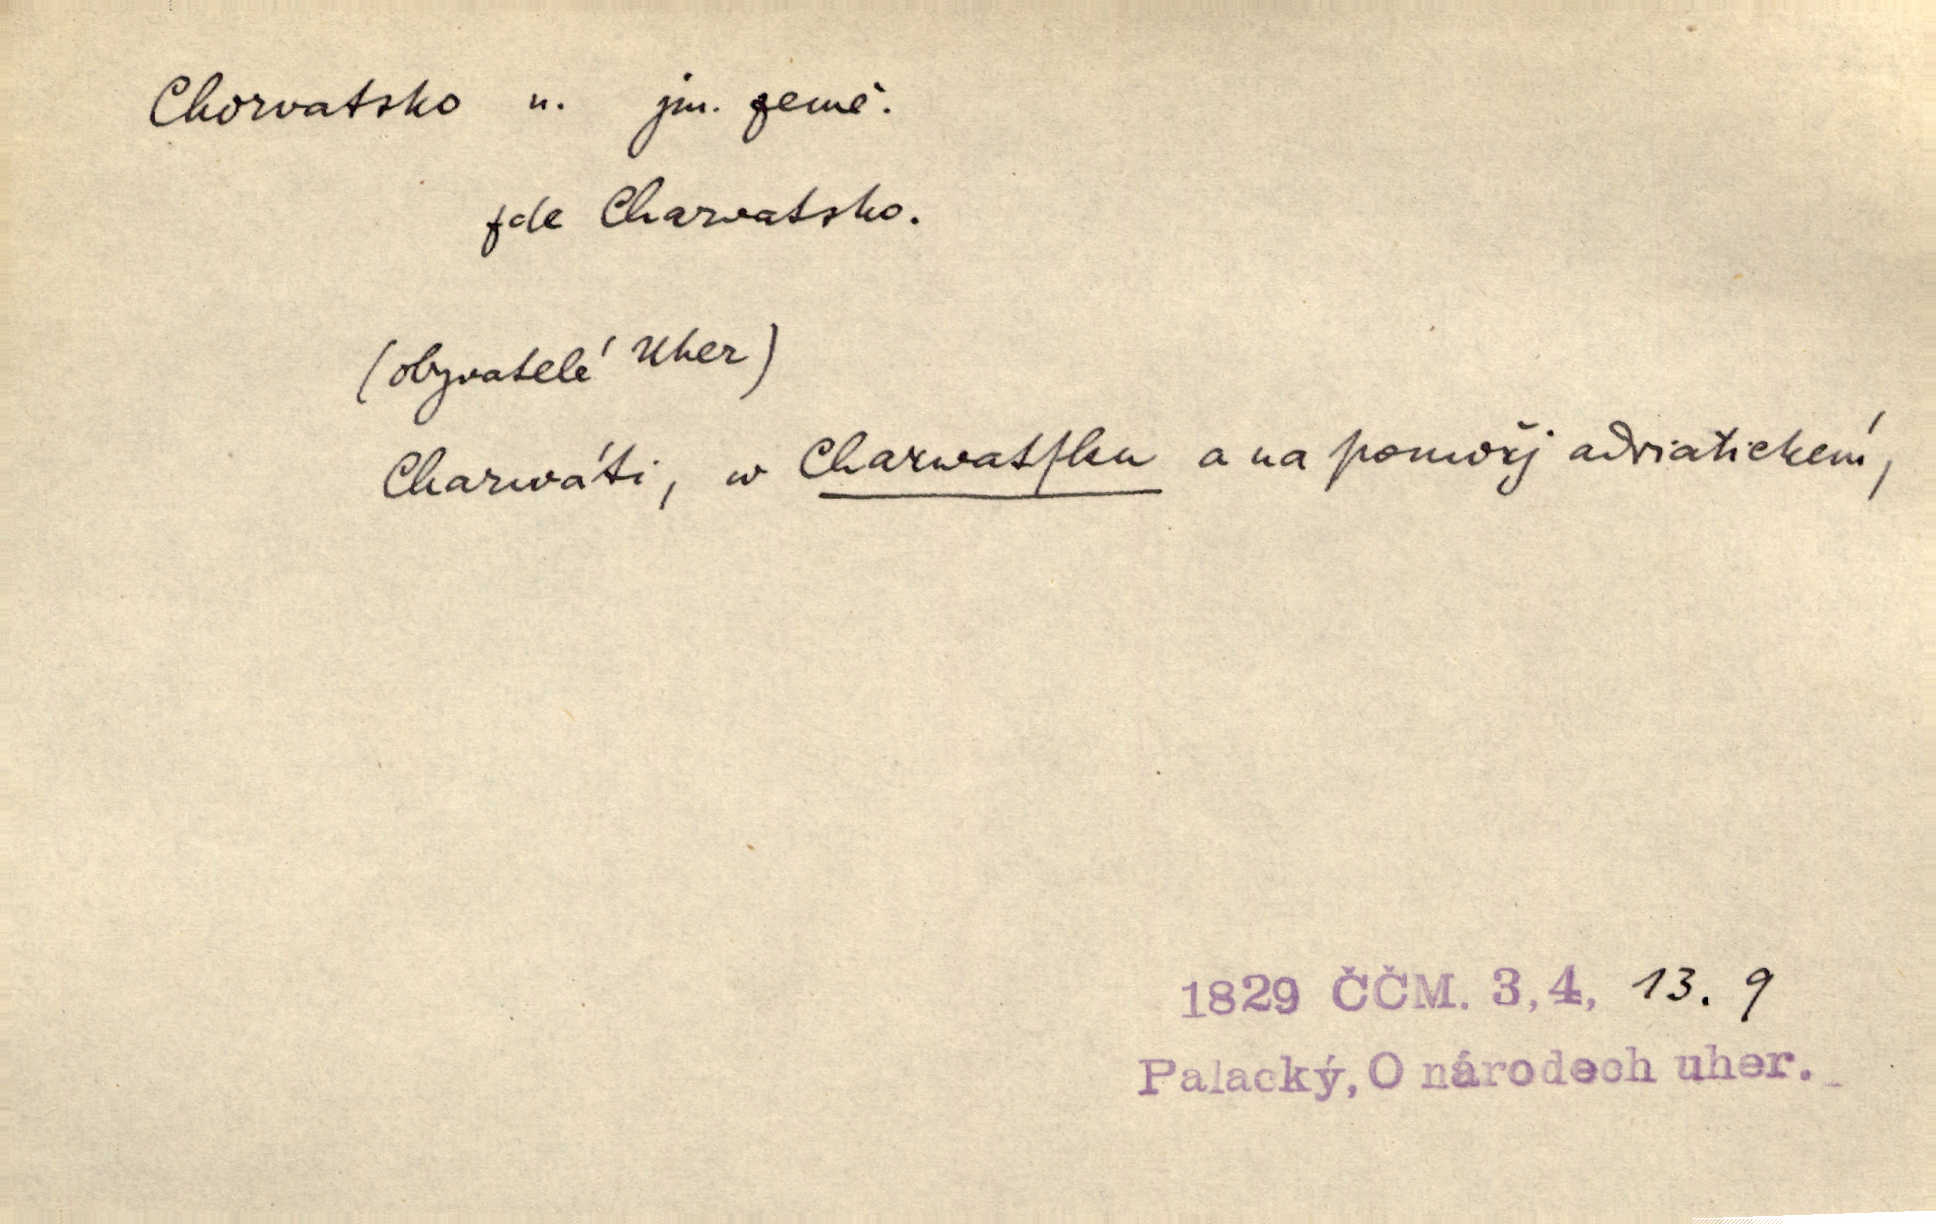 Chorvatsko n. jm. země.
zde Charvatsko.
(obyvatelé Uher)
Charwáti, w Charwatſku a na pomořj adriatickém,
1829 ČČM. 3,4, 13. 9
Palacký, O národech uher.